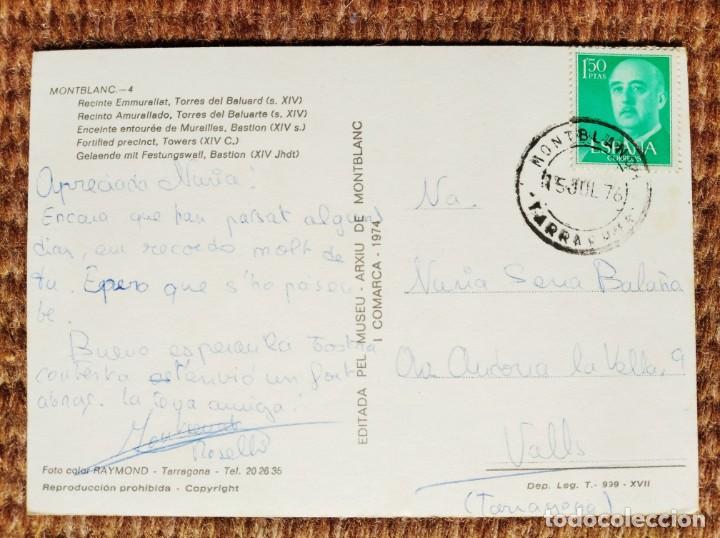 MONTBLANC.—4
Recinte Emmurallat, Torres del Baluard (s. XIV)
Recinto Amurallado, Torres del Baluarte (s. XIV)
Enceinte entourée de Murailles, Bastion (XIV s.)
Fortified precinct, Towers (XIV C.)
Gelaende mit Festungswall, Bastion (XIV Jhdt)
Apreciada Nuria!
Encara que han passat alguns
dias, em recordo molt de
tu. Espero que s'ho passeu
be.
Bueno esperan la vostra
contesta et envió un fort
abraç. la teva amiga!
Roselló
Foto color RAYMOND - Tarragona - Tel. 20 26 35
Reproducción prohibida - Copyright
EDITADA PEL MUSEU - ARXIU DE MONTBLANC
I COMARCA - 1974
1'50
PTAS
ESPAÑA
CORREOS
MONTBLANCH
15 JUL 76
TARRAGONA
Na.
Nuria Balaña
Av. Andorra la Vella, 9
Valls
(Tarragona)
Dep. Leg. T. - 999 - XVII
todocoleccion.net